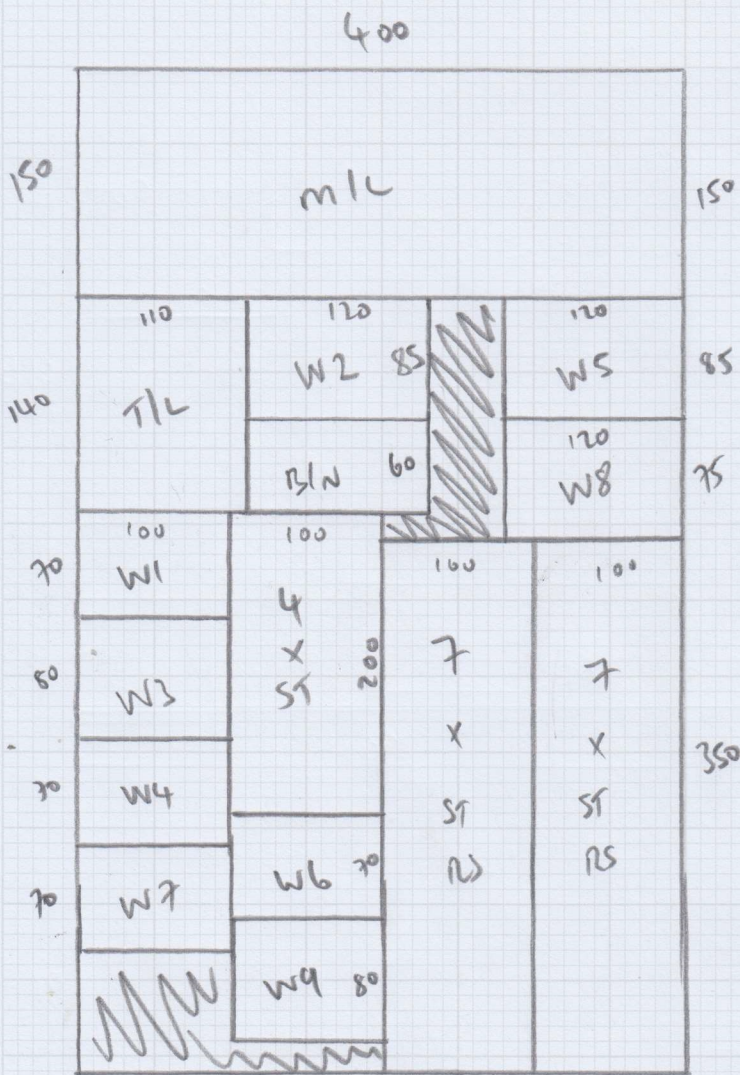 400
150
M/L
150
110
120
120
140
T/L
W2
85
W5
85
B/N
60
120
W8
75
100
100
100
100
70
W1
4
X
ST
200
7
X
ST
RS
7
X
ST
RS
350
80
W3
70
W4
70
W7
W6
70
W9
80